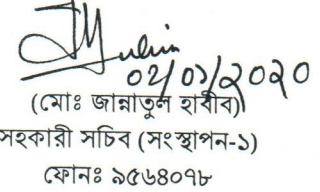 ০২/০১/২০২০
(মোঃ জান্নাতুল হাবীব)
সহকারী সচিব (সংস্থাপন-১)
ফোনঃ ৯৫৬৪০৭৮